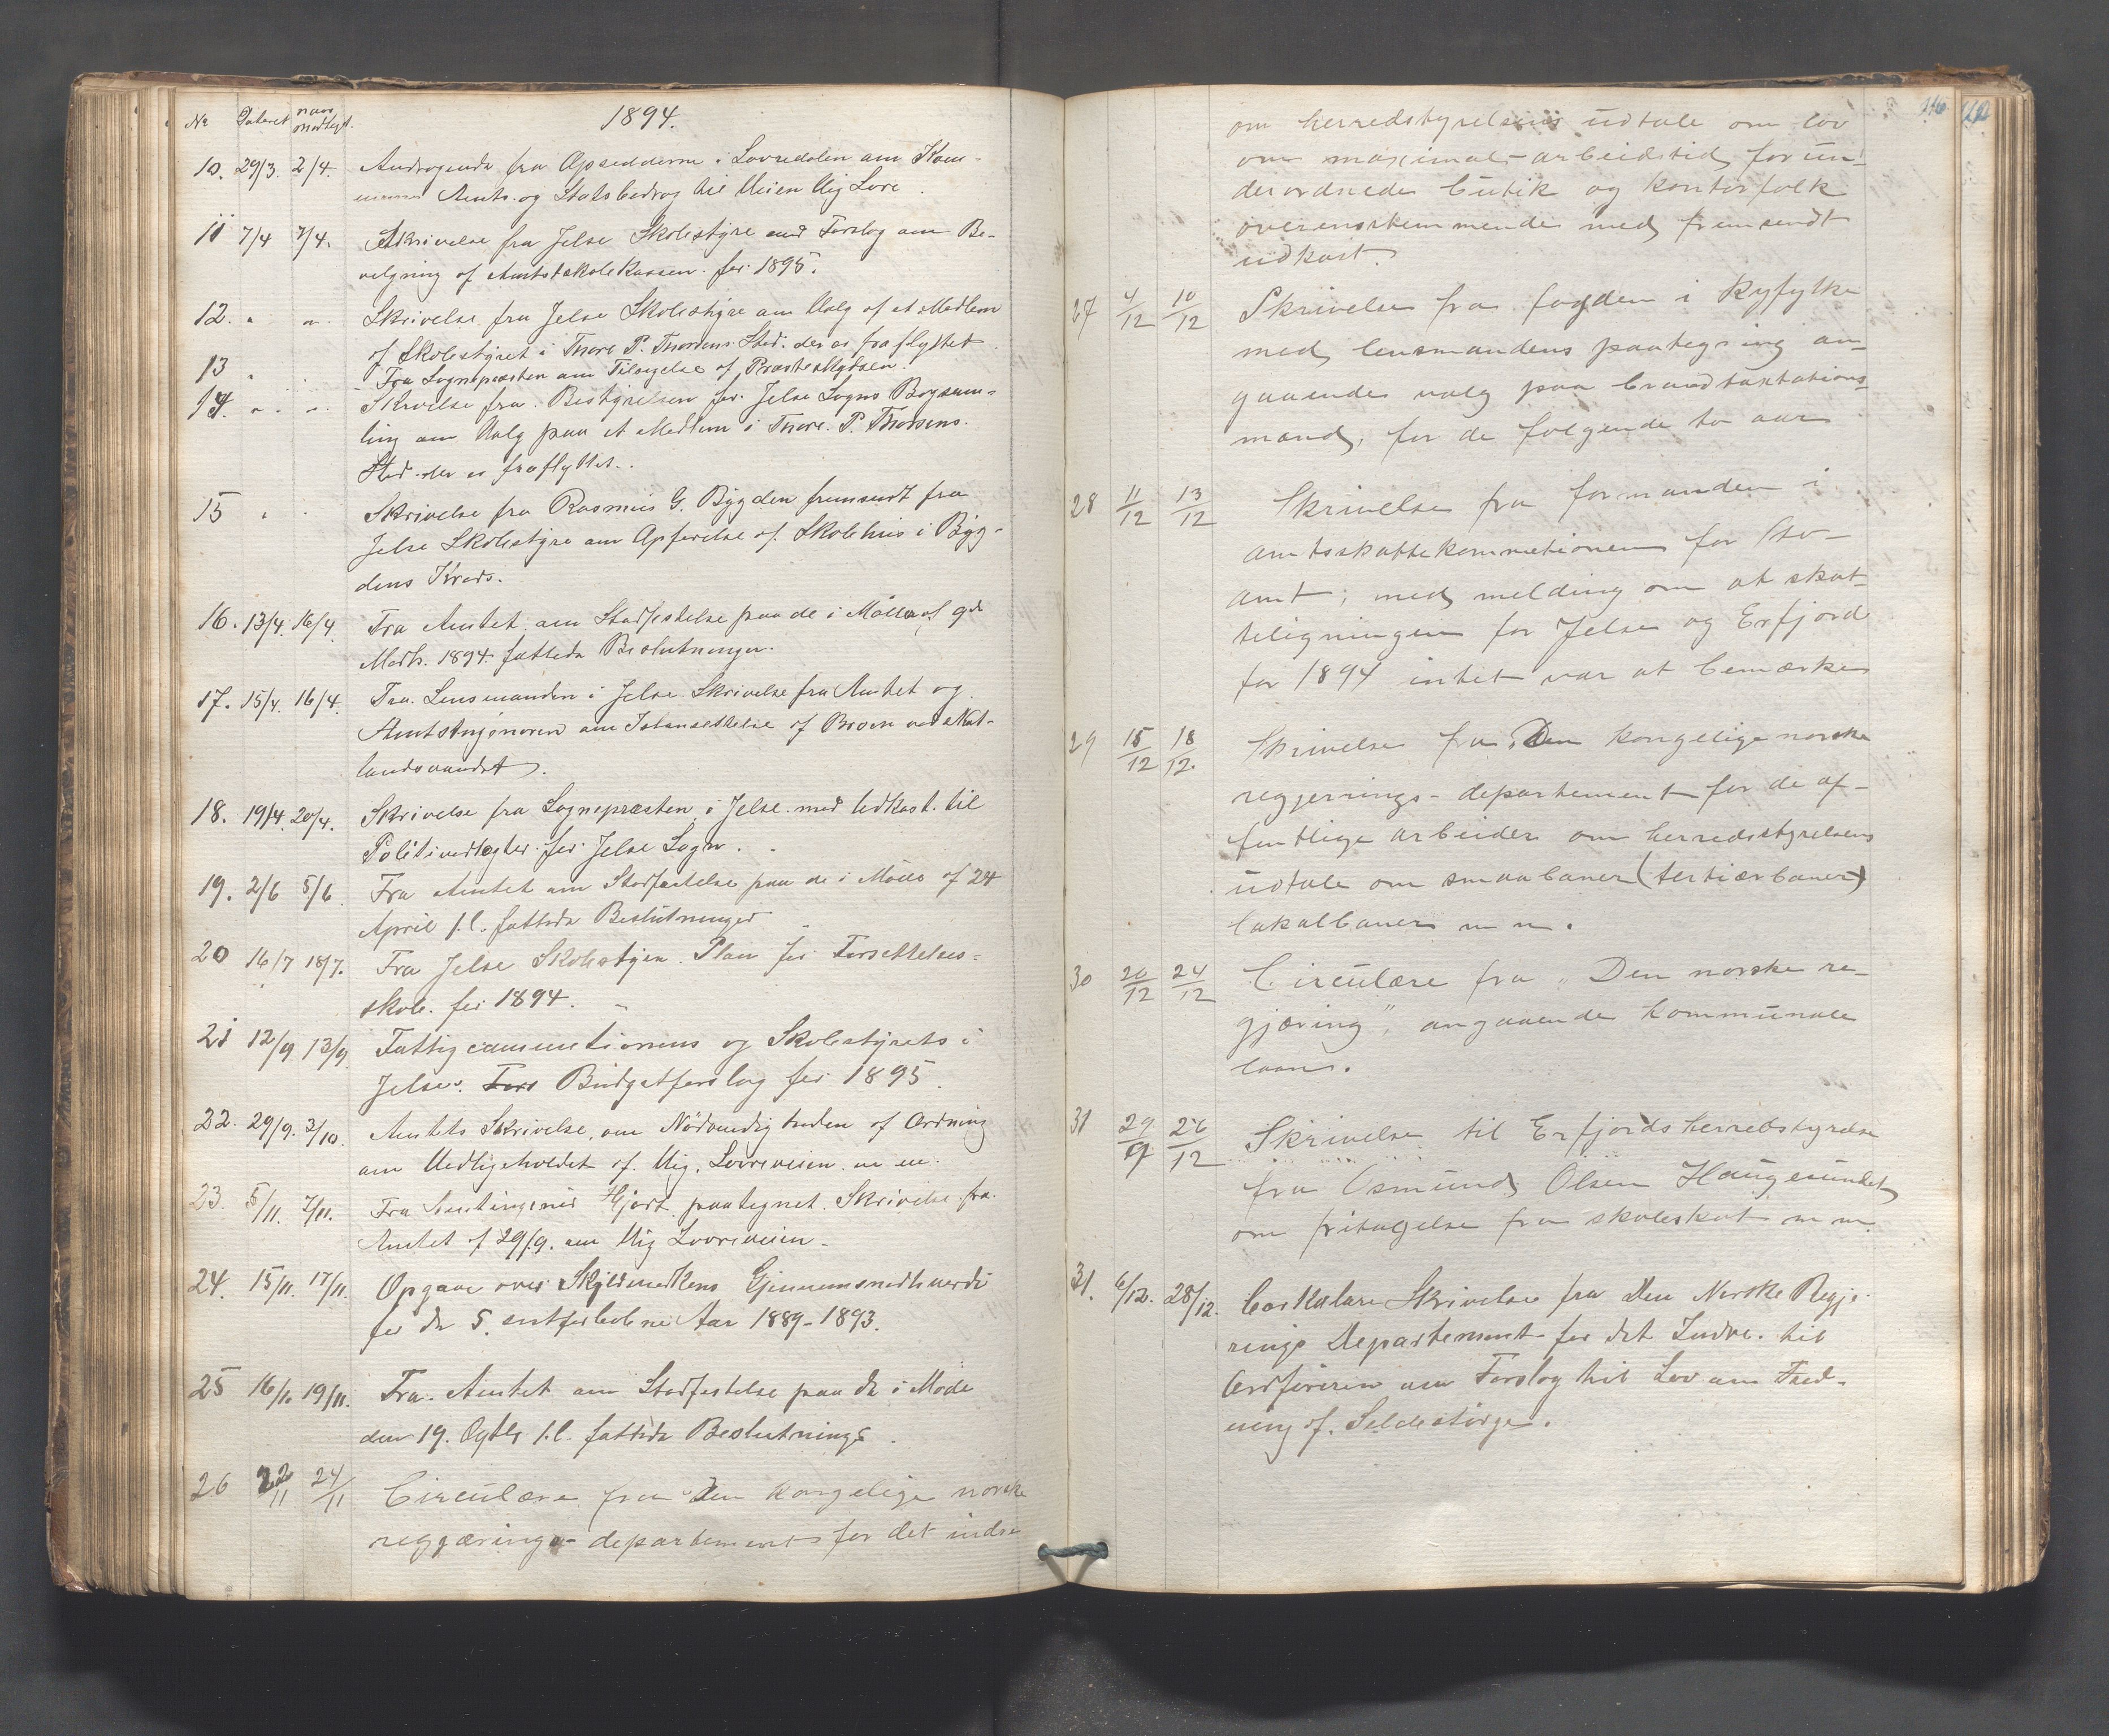 1894.
No Dateret naar modtaget.
10. 29/3. 2/4. Andragende fra Opsidderne i Lovredalen om Kom-
Amts- og Statsbidrag til Veien Vig Lovre.
11 7/4 7/4. Skrivelse fra Jelse Skolestyre med Forslag om Be-
vilgning af Amtsskolekassen for 1895.
12. " " Skrivelse fra Jelse Skolestyre om Valg af et Medlem
af Skolestyret i Thore P. Thorsens Sted. der er fraflyttet
13 " Fra Sognepræsten om Tilsyelse af Præsteskydsen.
14. " " Skrivelse fra Bestyrelsen for Jelse Sogns Bogsam-
ling om Valg paa et Medlem i Thore P. Thorsens.
Sted der er fraflyttet.
15 " Skrivelse fra Rasmus G. Bygden fremsendt fra
Jelse Skolestyre om Opførelse af Skolehus i Byg-
dens Kreds.
16. 13/4. 16/4. Fra Amtet om Stadfestelse paa de i Möde af 9de
Marts. 1894 fattede Beslutninger.
17. 15/4. 16/4. Fra Lensmanden i Jelse Skrivelse fra Amtet og
Amtsingenøren om Istansettelse af Broen ved
landsvandet.
18. 19/4. 20/4. Skrivelse fra Sognepræsten i Jelse med Udkast til
Politivedtægter for Jelse Sogn.
19. 2/6 5/6. Fra Amtet om Stadfestelse paa de i Möde af 24
April f.l. fattede Beslutninger
20 16/7 18/7. Fra Jelse Skolestyre Plan for Forsettelses-
skole for 1894.
21 12/9 13/9. Fattigcommitionens og Skolestyrets i
Jelse. Budgetforslag for 1895.
22. 29/9. 3/10. Amtets Skrivelse, om Nödvendigheden af Ordning
om Vedligeholdet af Vig, Lovreveien. m m.
23. 5/11. 7/11. Fra Amtingeniør Hjort paategnet. Skrivelse fra
Amtet af 29/9. om Vig Lovreveien.
24. 15/11. 17/11. Opgave over Skyldmarkens Gjennemsnedtsverdi
for de 5. sidstforløbne Aar 1889-1893.
25 16/11. 19/11. Fra Amtet om Stadfestelse paa de i Möde
den 19. f.l. fattede Beslutninge.
26 22/11 24/11 Circulære fra "Den kongelige norske
reggærings-departement for det indre
om herredstyrelsens udtale om lov
om maximal-arbeidstid for un-
derordnede butik og kontorfolk
overensstemmende med fremsendt
udkast.
27 4/12 10/12 Skrivelse fra fogden i Ryfylke
med lensmandens paategning an-
gaaende valg paa brandtaxtations-
mænd, for de følgende to aar
28 11/12 13/12 Skrivelse fra formanden i
amtsskattekommetionen for Stv-
amt; med melding om at skat-
teligningen for Jelse og Erfjord
for 1894 intet var at bemærke
29 15/12 18/12. Skrivelse fra "Den kongelige norske
regjerings-departement for de of-
fentlige arbeider om herredsstyrelsens
udtale om smaabaner (tertiærbaner)
lokalbaner m m.
30 20/12 24/12 Circulære fra "Den norske re-
gjæring", angaaende kommunale
laan.
31 29/9 26/12 Skrivelse til Erfjords herredstyrelse
fra Osmund Olsen Haugesundet
om fritagelse fra skoleskat m m.
31. 6/12. 28/12. Skrivelse fra Den Norske Regje-
rings Departement for det Indre. til
Ordføreren om Forslag til Lov om Fred-
ning af Sildestørje.